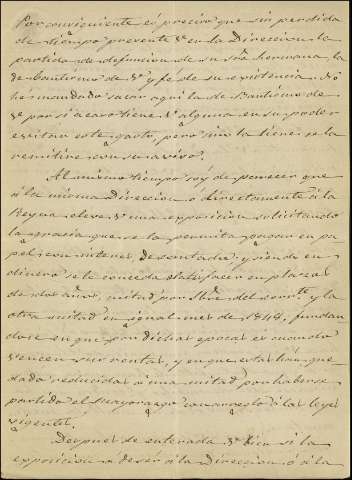 Por consiguiente es preciso que sin perdida
de tiempo presente V. en la Direccion la
partida de defuncion de su Sra. hermana, la
de Bautismo de V. y fe de su existencia. No
he mandado sacar aqui la de Bautismo de
V. por si acaso tiene V. alguna en su poder
evitar este gasto, pero sino la tiene se la
remitiré con su aviso.
Al mismo tiempo soy de parecer que
á la misma Direccion ó directamente á la
Reyna eleve V. una exposicion solicitando
la gracia que se la permita pagar en pa
pel con interes, descontado, y siendo en
dinero se le conceda satisfacer en plazos
de dos años, mitad por Nbre. del corrte. y la
otra mitad en igual mes de 1848, fundan
dose en que por dichas epocas es cuando
vencen sus rentas, y en que estas han que
dado reducidas á una mitad por haberse
partido el Mayorazgo con arreglo á las leyes
vigentes.
Despues de enterada V. bien si la
exposicion á de ser á la Direccion ó á la